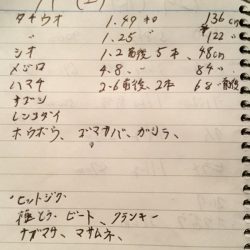 タチウオ 1.49キロ 136cm
〃 1.25 〃 122 〃
シオ 1.2前後 5本、48cm
メジロ 4.8 〃 84 〃
ハマチ 2.6前後、2本 68 前後
サゴシ
レンコダイ
ホウボウ、ゴマサバ、ガシラ、
・ヒットジグ
極とう、ビート、クランキー
ナガマサ、マサムネ、